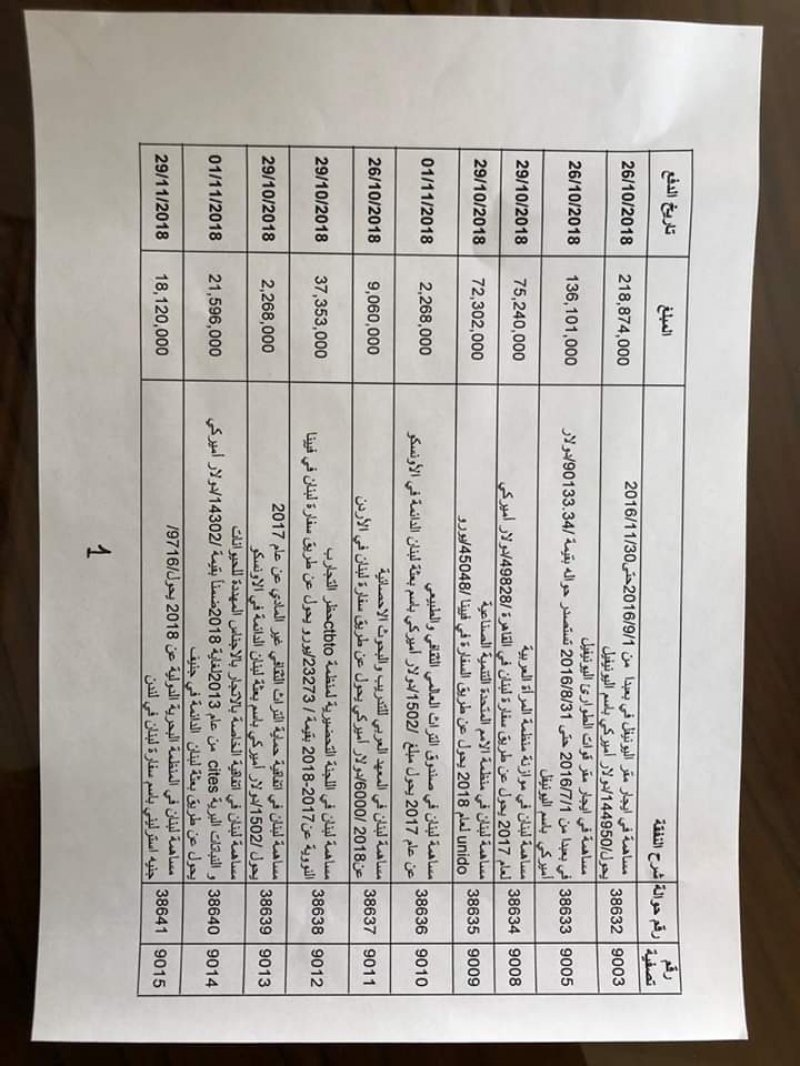 رقم تصفية | رقم حوالة | شرح النفقة | المبلغ | تاريخ الدفع
9003 | 38632 | مساهمة في ايجار مقر اليونيفل في بعبدا من 2016/9/1 حتى 2016/11/30
يحول /144950/دولار أميركي باسم اليونيفيل | 218,874,000 | 26/10/2018
9005 | 38633 | مساهمة في ايجار مقر قوات الطوارئ اليونيفيل
في بعبدا من 2016/7/1 حتى 2016/8/31 تستصدر حواله بقيمة /90133.34/دولار
أميركي باسم اليونيفل | 136,101,000 | 26/10/2018
9008 | 38634 | مساهمة لبنان في موازنة منظمة المرأة العربية
لعام 2017 يحول عن طريق سفارة لبنان في القاهرة /49828/دولار أميركي | 75,240,000 | 29/10/2018
9009 | 38635 | مساهمة لبنان في منظمة الامم المتحدة التنمية الصناعية
unido لعام 2018 يحول عن طريق السفارة في فيينا /45048/يورو | 72,302,000 | 29/10/2018
9010 | 38636 | مساهمة لبنان في صندوق التراث العالمي الثقافي والطبيعي
عن عام 2017 يحول مبلغ /1502/دولار أميركي باسم بعثة لبنان الدائمة في الأونسكو | 2,268,000 | 01/11/2018
9011 | 38637 | مساهمة لبنان في المعهد العربي للتدريب والبحوث الاحصائية
عن2018 /6000/دولار أميركي يحول عن طريق سفارة لبنان في الأردن | 9,060,000 | 26/10/2018
9012 | 38638 | مساهمة لبنان في اللجنة التحضيرية لمنظمة ctbtoحظر التجارب
النووية عن2017-2018 بقيمة / 23273/يورو يحول عن طريق سفارة لبنان في فيينا | 37,353,000 | 29/10/2018
9013 | 38639 | مساهمة لبنان في اتفاقية حماية التراث الثقافي غير المادي عن عام 2017
يحول /1502/دولار أميركي باسم بعثة لبنان الدائمة في الاونسكو | 2,268,000 | 29/10/2018
9014 | 38640 | مساهمة لبنان في اتفاقية الخاصة بالاتجار بالاجناس المهددة للحيوانات
و النباتات البرية cites من عام 2013لغاية 2018ضمناً بقيمة /14302/دولار أميركي
يحول عن طريق بعثة لبنان الدائمة في جنيف | 21,596,000 | 01/11/2018
9015 | 38641 | مساهمة لبنان في المنظمة البحرية الدولية عن 2018 يحول/9716/
جنيه استرليني باسم سفارة لبنان في لندن | 18,120,000 | 29/11/2018
1